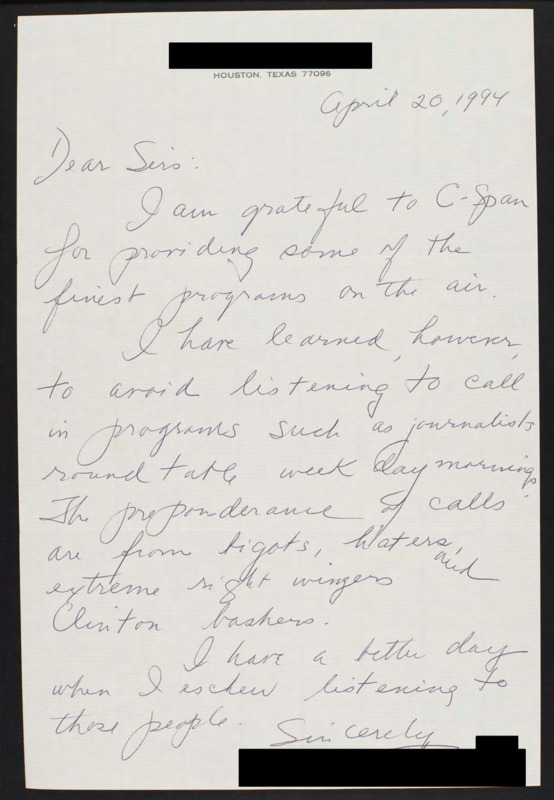 HOUSTON, TEXAS 77096
April 20, 1994
Dear Sirs:
I am grateful to C-Span
for providing some of the
finest programs on the air.
I have learned, however,
to avoid listening to call
in programs such as journalists
round table week day mornings.
The preponderance of calls
are from bigots, haters, and
extreme right wingers
Clinton bashers.
I have a better day
when I eschew listening to
those people.
Sincerely